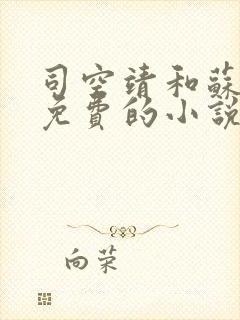 司空靖和蘇
免費的小說
向荣